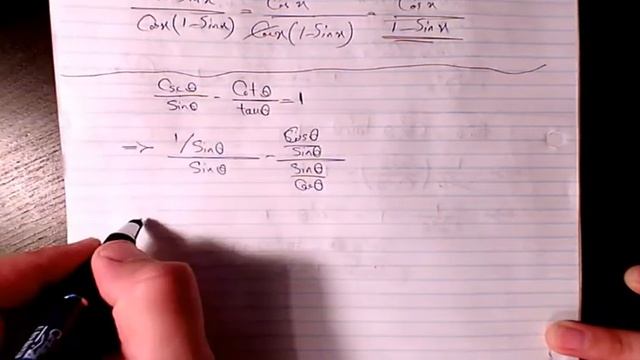 Cosx(1-Sinx) = Cosx(1-Sinx) = 1-Sinx
Cscθ/Sinθ - Cotθ/tanθ = 1
=> (1/Sinθ)/Sinθ - (Cosθ/Sinθ)/(Sinθ/Cosθ)